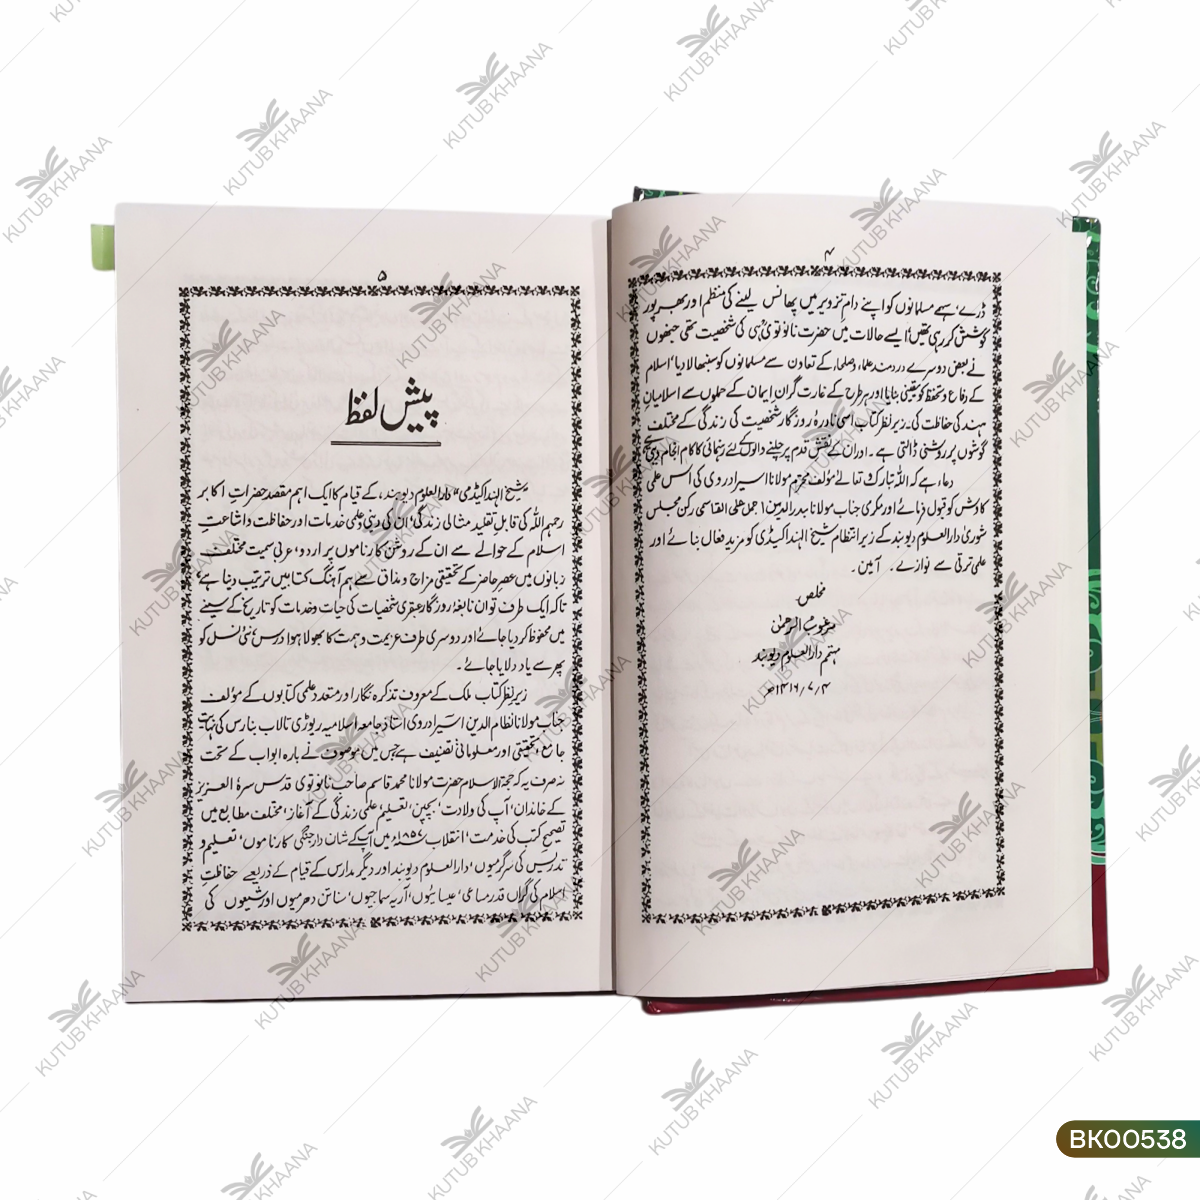 ۴
ڈرے سہے مسلمانوں کو اپنے دام تزویر میں پھانس لینے کی منظم اور بھرپور
کوشش کر رہی تھیں، ایسے حالات میں حضرت نانوتویؒ ہی کی شخصیت تھی جنھوں
نے بعض دوسرے دردمند علماء وصلحاء کے تعاون سے مسلمانوں کو سنبھالا دیا، اسلام
کے دفاع و تحفظ کو یقینی بنایا اور ہر طرح کے غارت گران ایمان کے حملوں سے اسلامیانِ
ہند کی حفاظت کی۔ زیر نظر کتاب اسی نادرۂ روزگار شخصیت کی زندگی کے مختلف
گوشوں پر روشنی ڈالتی ہے۔ اور ان کے نقش قدم پر چلنے والوں کے لئے رہنمائی کا کام انجام دیتی ہے
دعاء ہے کہ اللہ تبارک تعالےٰ مؤلف محترم مولانا اسیر ادروی کی اس علمی
کاوش کو قبول فرمائے اور مکرمی جناب مولانا بدرالدین اجمل علی القاسمی رکن مجلس
شوریٰ دارالعلوم دیوبند کے زیر انتظام شیخ الہند اکیڈمی کو مزید فعال بنائے اور
علمی ترقی سے نوازے۔ آمین۔
مخلص
مرغوب الرحمٰن
مہتمم دارالعلوم دیوبند
۴/۷/۱۴۱۶ھ
۵
پیش لفظ
"شیخ الہند اکیڈمی" دارالعلوم دیوبند، کے قیام کا ایک اہم مقصد حضراتِ اکابر
رحمہم اللہ کی قابلِ تقلید مثالی زندگی، ان کی دینی وعلمی خدمات اور حفاظت و اشاعتِ
اسلام کے حوالے سے ان کے روشن کارناموں پر اردو، عربی سمیت مختلف
زبانوں میں عصر حاضر کے تحقیقی مزاج و مذاق سے ہم آہنگ کتابیں ترتیب دینا ہے،
تاکہ ایک طرف تو ان نابغۂ روزگار عبقری شخصیات کی حیات وخدمات کو تاریخ کے سینے
میں محفوظ کر دیا جائے اور دوسری طرف عزیمت و ہمت کا بھولا ہوا درس، نئی نسل کو
پھر سے یاد دلایا جائے۔
زیر نظر کتاب ملک کے معروف تذکرہ نگار اور متعدد علمی کتابوں کے مؤلف
جناب مولانا نظام الدین اسیر ادروی استاذ جامعہ اسلامیہ ریوڑی تالاب بنارس کی نہایت
جامع، تحقیقی اور معلوماتی تصنیف ہے جس میں موصوف نے بارہ ابواب کے تحت
نہ صرف یہ کہ حجۃ الاسلام حضرت مولانا محمد قاسم صاحب نانوتوی قدس سرہٗ العزیز
کے خاندان، آپ کی ولادت، بچپن، تعلیم، علمی زندگی کے آغاز، مختلف مطابع میں
تصحیح کتب کی خدمت، انقلاب ۱۸۵۷ء میں آپ کے شاندار جنگی کارناموں، تعلیم و
تدریس کی سرگرمیوں، دارالعلوم دیوبند اور دیگر مدارس کے قیام کے ذریعے حفاظتِ
اسلام کی گراں قدر مساعی، عیسائیوں، آریہ سماجیوں، سناتن دھرمیوں اور شیعوں کی
KUTUB KHAANA
BK00538